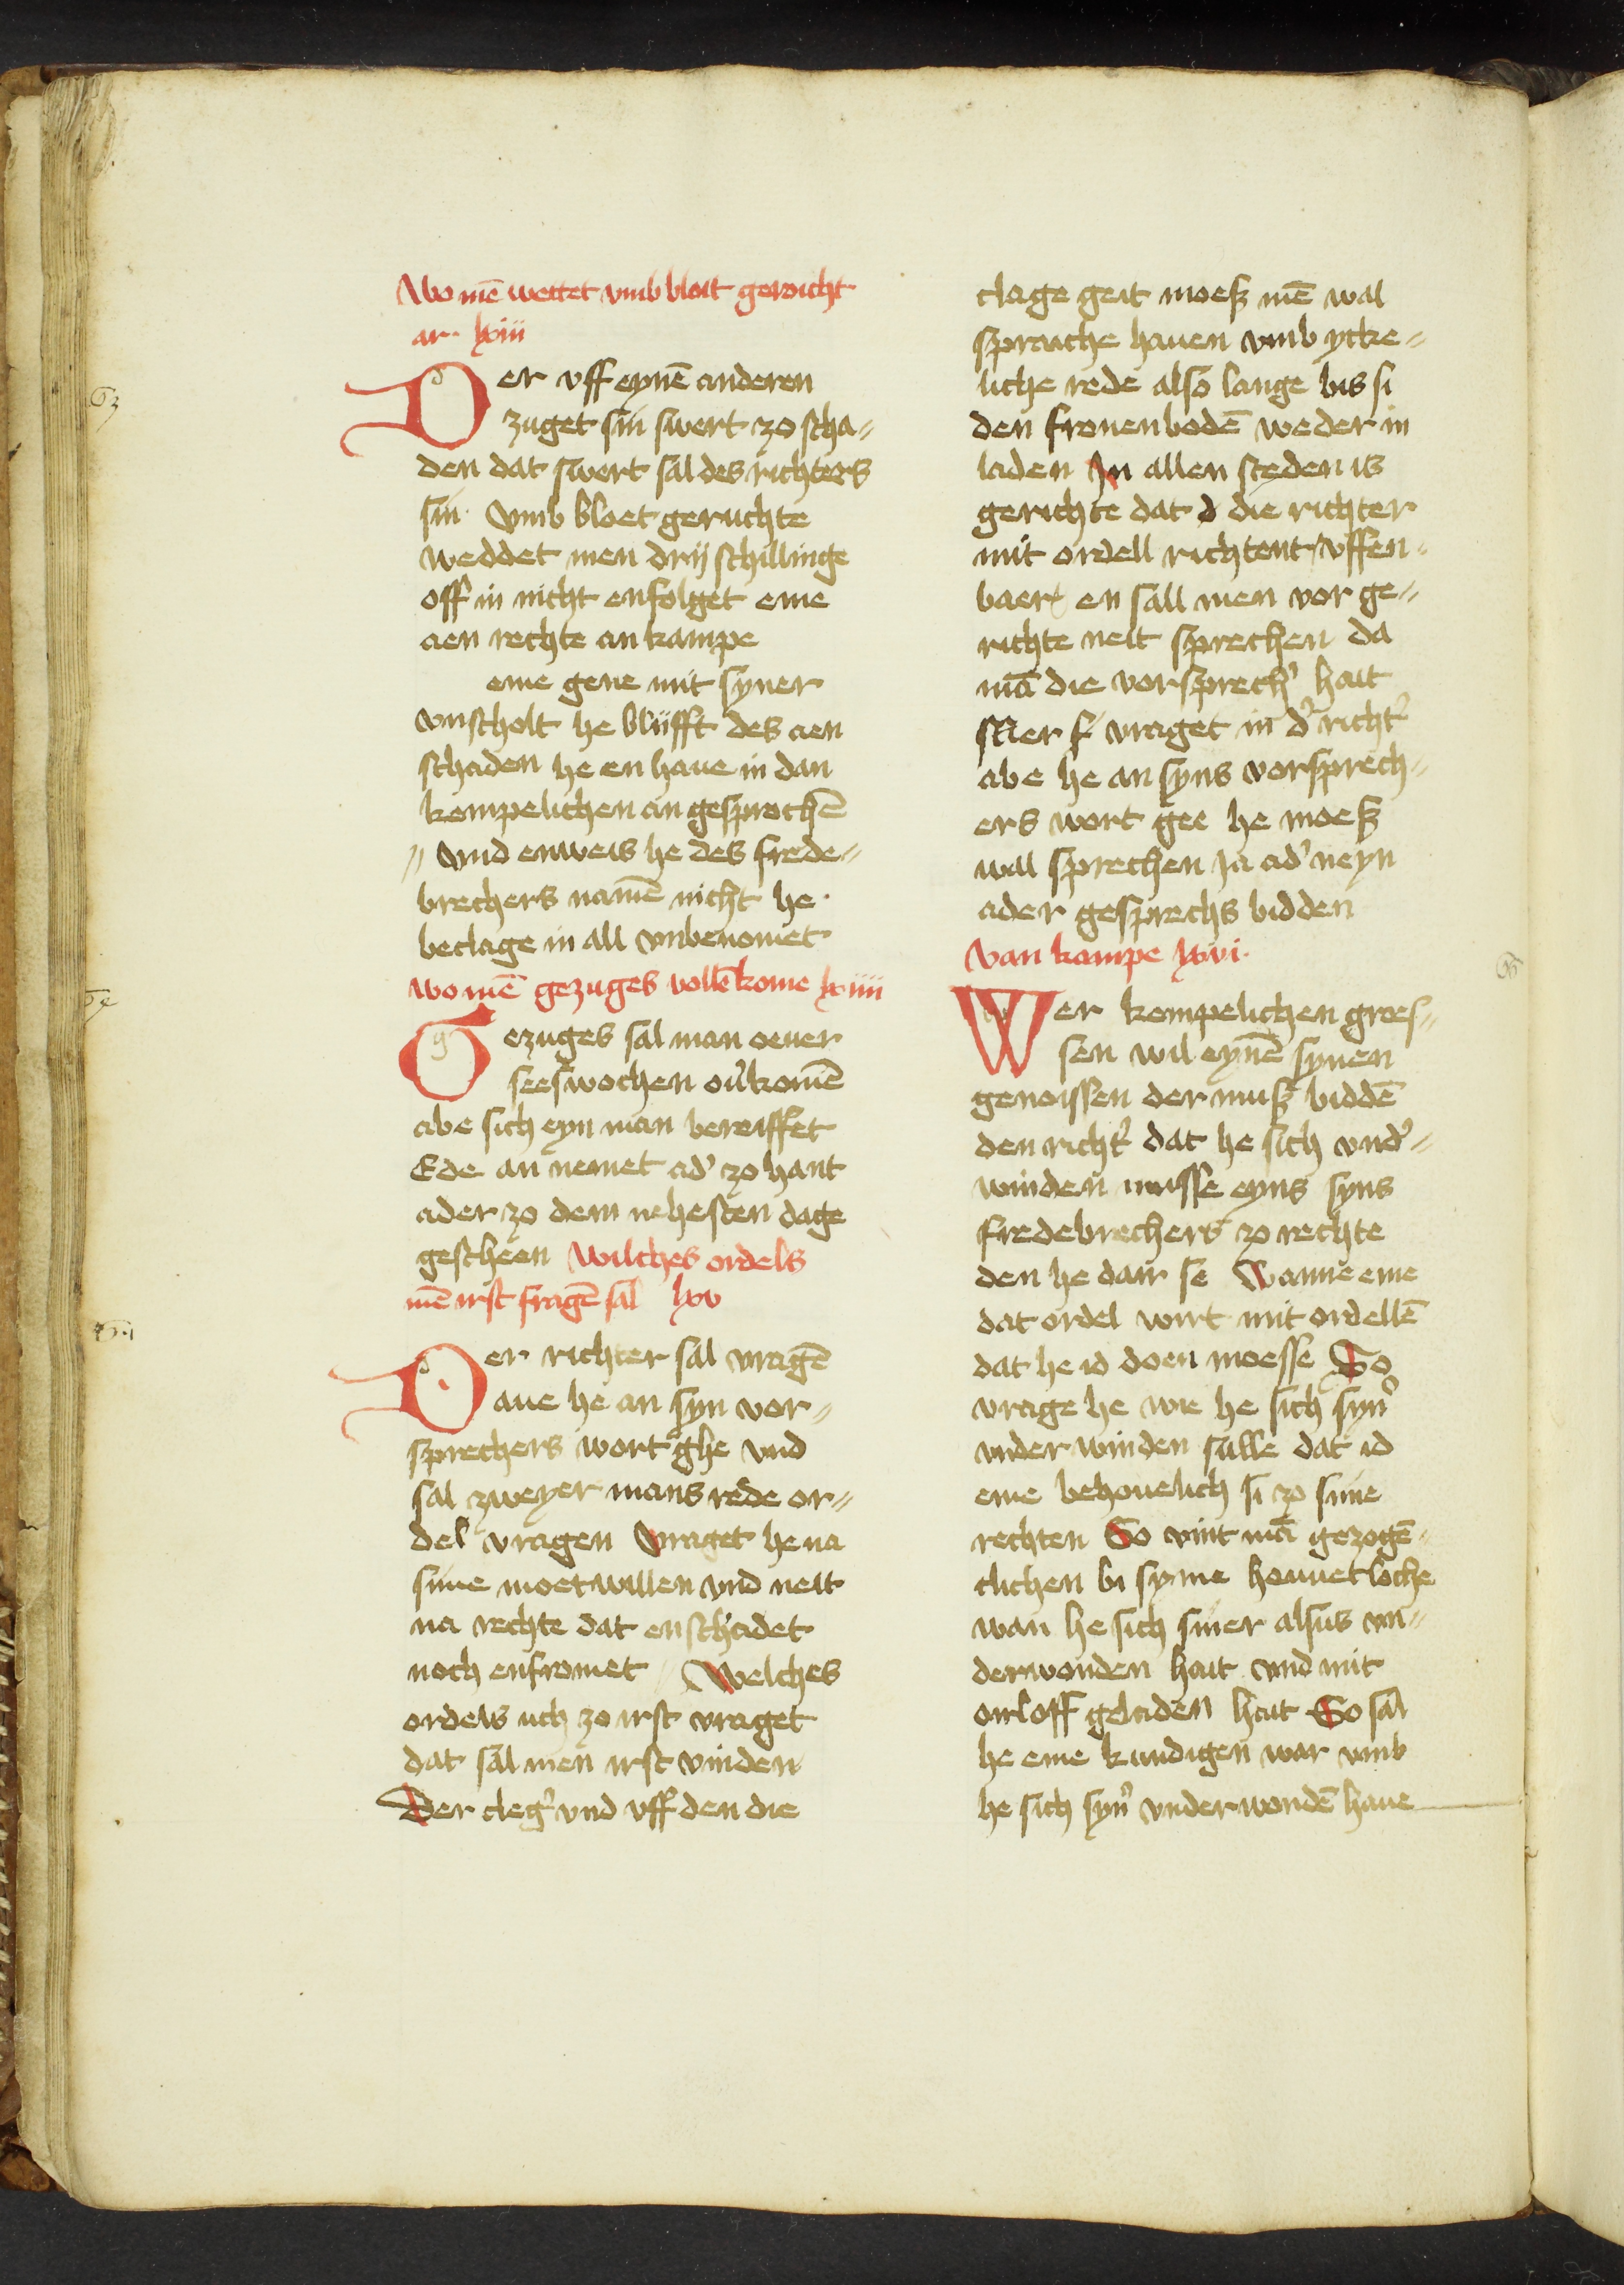 Wo mē wettet vmb bloit geroicht
ar. lxiii
Der vff eynē anderen
zuget sin swert zo scha=
den dat swert sal des richters
sin. Vmb bloet geruchte
weddet men drij schillinge
off in nicht enfolget eme
aen rechte an kampe
eme gene mit syner
vnscholt he blüfft des aen
schaden he en haue in dan
kempelichen an gesprochē
// vnd enweis he des frede=
brechers namē nicht he
beclage in all vnbenomet
wo mē gezuges vollēkome lxiiii
Gezuges sal man oeuer
seeswochen ou'komē
abe sich eyn man bereiffet
Ede an nemet ad' zo hant
ader zo dem nehesten dage
gescheen Wilches ordels
mē irst fragē sal lxv
Der richter sal vragē
aue he an syn vor=
sprechers wort ghe vnd
sal zweyer mans rede or=
del vragen Vraget he na
sime moetwillen vnd neit
na rechte dat enschadet
noch enfromet / Welches
ordels uch zo irst vraget
dat sal men irst vinden
Der cleg' vnd vff den die
clage geit moeß mē wal
spraiche hauen vmb ytke=
liche rede also lange bis si
den fronenbodē weder in
laden In allen steden is
gerichte dat d die richter
mit ordell richtent / vffen=
baer en sall men vor ge=
richte neit sprechen da
mā die vorsprech' hait
Mer s vraget in d' richt'
abe he an syns vorsprech=
ers wort gee he moeß
wal sprechen Ja ad' neyn
ader gesprechs bidden
Van kampe lxvi.
Wer kempelichen groes=
sen wil eynē synen
genoissen der muß biddē
den richt' dat he sich vnd'=
winden musse eyns syns
fredebrechers zo rechte
den he dair se Wanne eme
dat ordel wirt mit ordellē
dat he id doen moesse So
vrage he wie he sich syn'
vnder winden sulle dat id
eme behouelich si zo sime
rechten So vint mā gezogē=
clichen bi syme houuetloche
wan he sich siner alsus vn=
derwonden hait vnd mit
orloff geladen hait So sal
he eme kundigen war vmb
he sich syn' vnderwondē haue
63
64
65
66